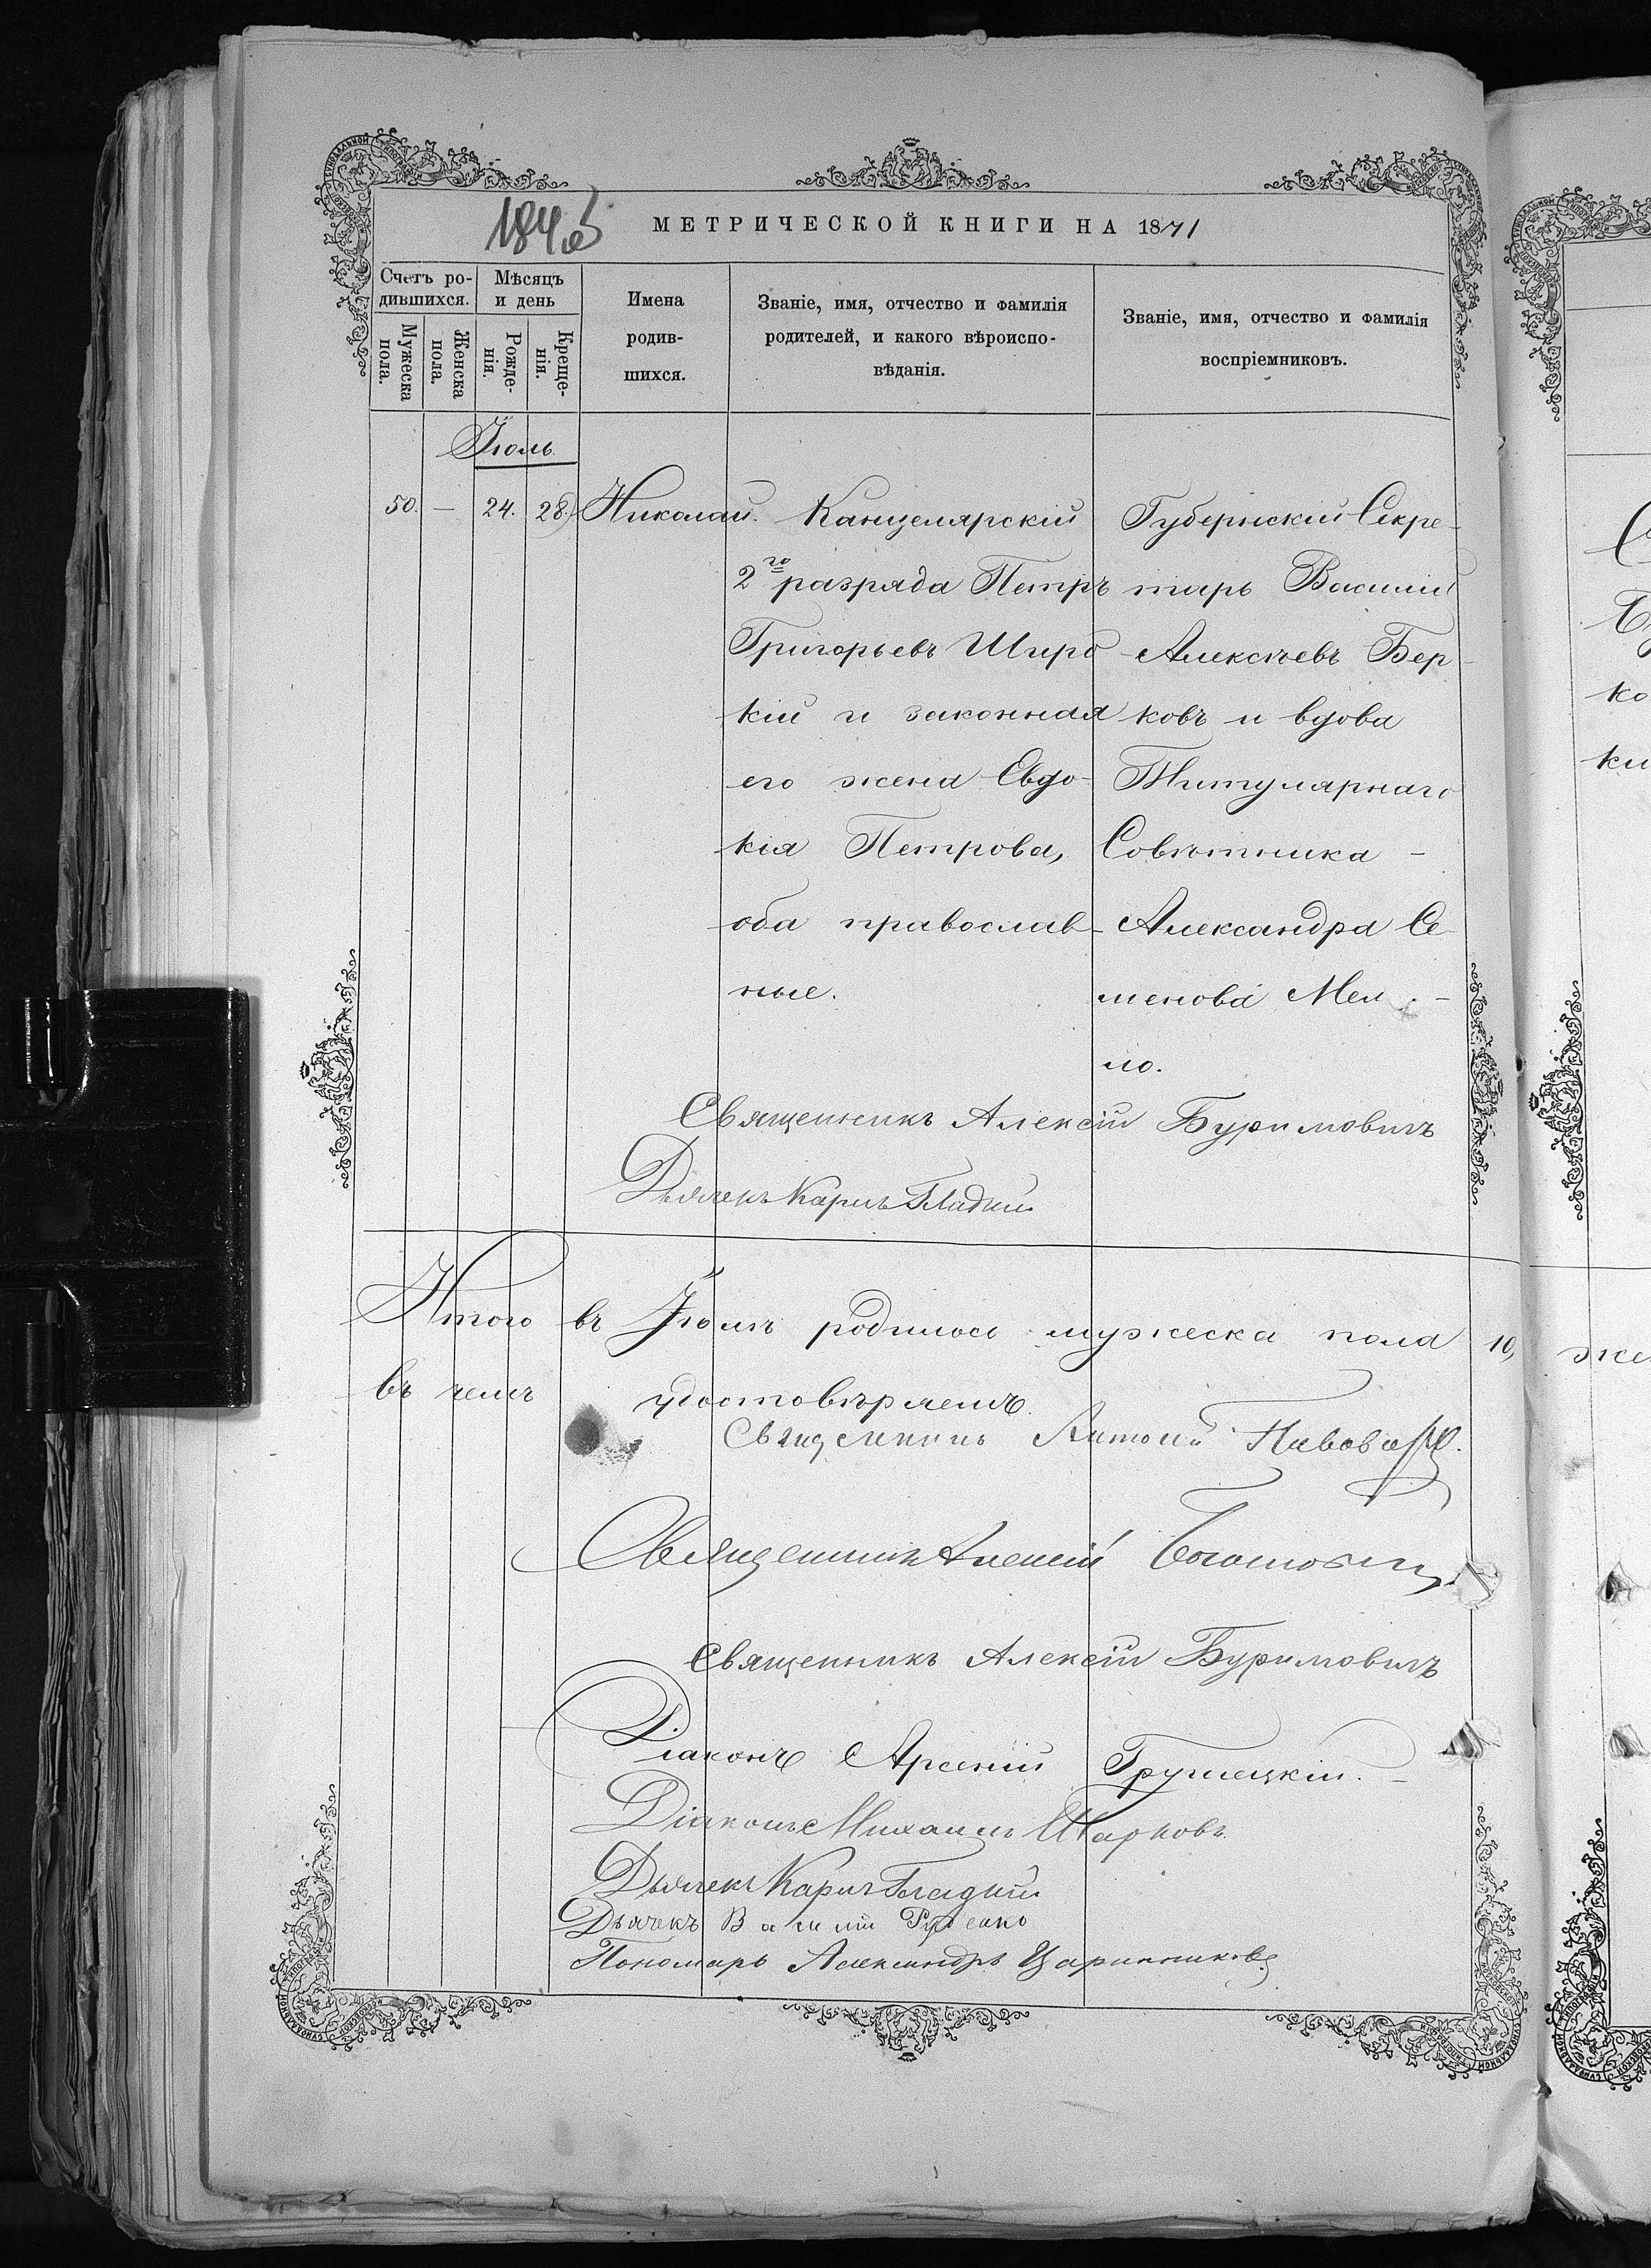 184 об
МЕТРИЧЕСКОЙ КНИГИ НА 1871
Счетъ ро-
дившихся.
Мѣсяцъ
и день
Мужеска
пола.
Женска
пола.
Рожде-
нія.
Креще-
нія.
Имена
родив-
шихся.
Званіе, имя, отчество и фамилія
родителей, и какого вѣроиспо-
вѣданія.
Званіе, имя, отчество и фамилія
воспріемниковъ.
Іюль
50. — 24. 28. Николай.
Канцелярскій
2го разряда Петръ
Григорьевъ Широ
кій и законная
его жена Евдо-
кія Петрова,
оба православ-
ные.
Губернскій Секре-
тарь Василій
Алексѣевъ Бер-
ковъ и вдова
Титулярнаго
Совѣтника -
Александра Се-
менова Мел -
ло.
Священникъ Алексій Буримовичъ
Дьячекъ Карпъ Гладкій
Итого въ Іюлѣ родилось мужеска пола 10,
въ чемъ удостовѣряемъ
Священникъ Антоній
Священникъ Алексій
Священникъ Алексій Буримовичъ
Діаконъ Арсеній Грушецкій. -
Діаконъ Михаилъ Шарковъ
Дьячекъ Карпъ Гладкій
Дьячекъ Василій
Пономарь Александръ Царинниковъ